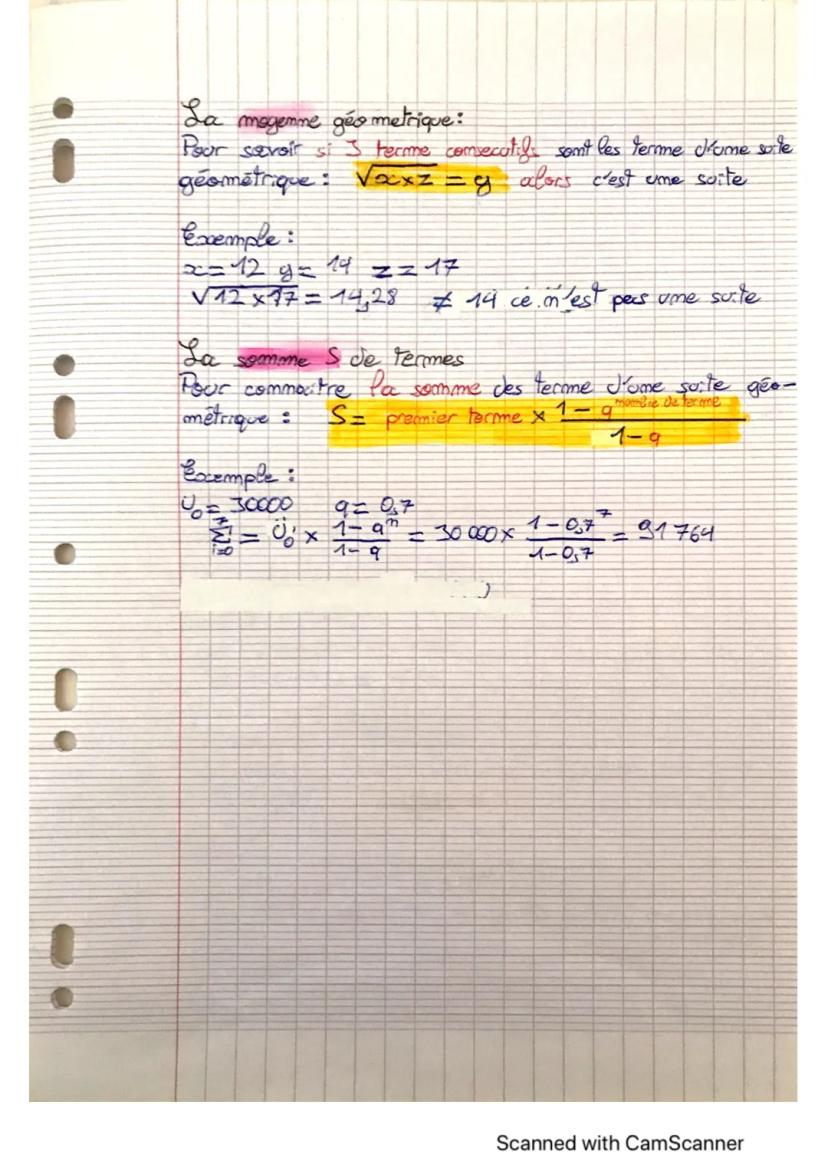 La moyenne géometrique:
Pour savoir si 3 terme consecutifs sont les terme d'une suite
géométrique : √x×z = y alors c'est une suite
Exemple :
x = 12 y = 14 z = 17
√12×17 = 14,28 ≠ 14 ce n'est pas une suite
La somme S de termes
Pour connaitre la somme des terme d'une suite géo-
métrique : S = premier terme × (1 - q^nombre de terme)/(1 - q)
Exemple :
U₀ = 30000 q = 0,7
∑⁷ᵢ₌₀ = U₀ × (1 - qⁿ)/(1 - q) = 30 000 × (1 - 0,7⁷)/(1 - 0,7) = 91 764
Scanned with CamScanner